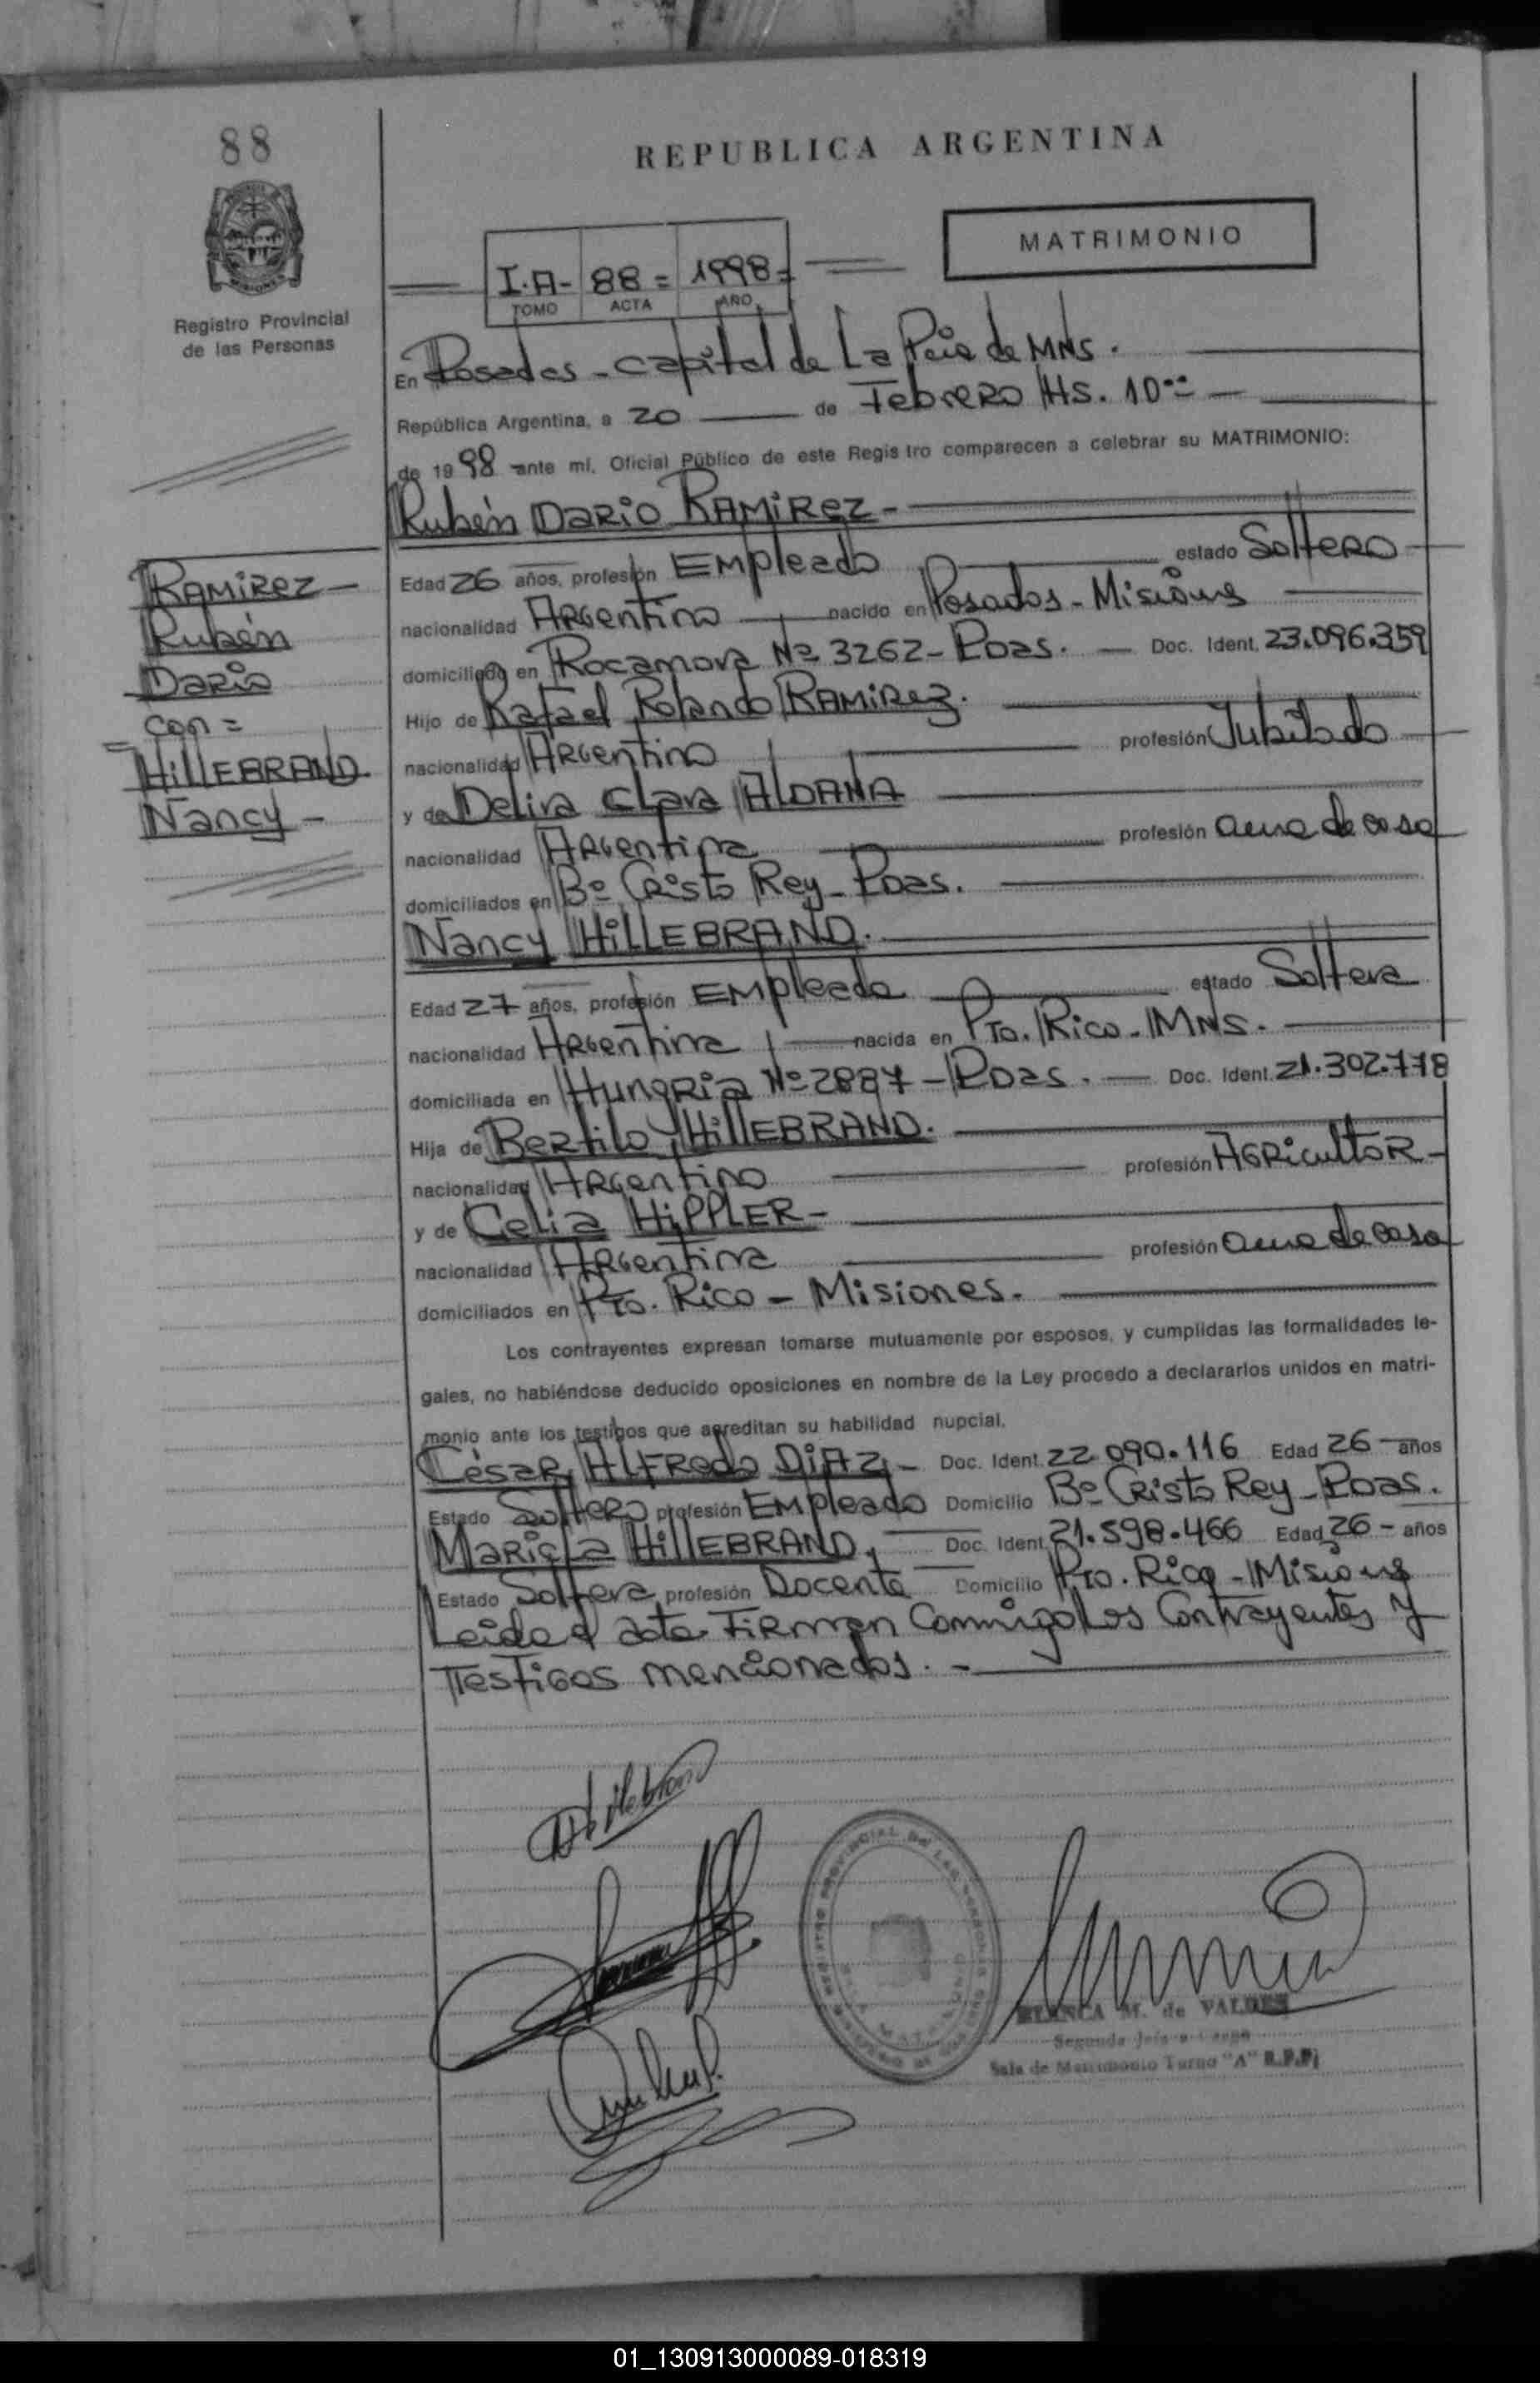 88
REPUBLICA ARGENTINA
MATRIMONIO
I.A- 88= 1998=
TOMO ACTA AÑO
Registro Provincial
de las Personas
En Posadas - Capital de La Pcia de MNS.
República Argentina, a 20 de Febrero Hs. 10
de 1998 ante mí, Oficial Público de este Registro comparecen a celebrar su MATRIMONIO:
Rubén DARIO RAMIREZ-
Edad 26 años, profesión Empleado estado Soltero
nacionalidad Argentino nacido en Posadas - Misiones
domiciliado en Rocamora Nº 3262 - Pdas. Doc. Ident. 23.096.359
Hijo de Rafael Rolando RAMIREZ.
nacionalidad Argentino profesión Jubilado
y de Delira Clara ALDANA
nacionalidad Argentina profesión ama de casa
domiciliados en Bº Cristo Rey - Pdas.
Nancy HILLEBRAND.
Edad 27 años, profesión Empleada estado Soltera
nacionalidad Argentina nacida en Pto. Rico - MNS.
domiciliada en Hungria Nº 2887 - Pdas. Doc. Ident. 21.302.778
Hija de Bertilo HILLEBRAND.
nacionalidad Argentino profesión Agricultor-
y de Celia HIPPLER-
nacionalidad Argentina profesión ama de casa
domiciliados en Pto. Rico - Misiones.
Los contrayentes expresan tomarse mutuamente por esposos, y cumplidas las formalidades le-
gales, no habiéndose deducido oposiciones en nombre de la Ley procedo a declararlos unidos en matri-
monio ante los testigos que acreditan su habilidad nupcial.
César Alfredo DIAZ- Doc. Ident. 22.090.116 Edad 26 años
Estado Soltero profesión Empleado Domicilio Bº Cristo Rey - Pdas.
Mariela HILLEBRAND. Doc. Ident. 21.598.466 Edad 26 - años
Estado Soltera profesión Docente Domicilio Pto. Rico - Misiones
Leida el acta Firman Conmigo Los Contrayentes y
Testigos mencionados.-
RAMIREZ-
Rubén
Dario
con=
HILLEBRAND
Nancy-
BLANCA M. de VALDEZ
Segunda Jefe a Cargo
Sala de Matrimonio Turno "A" R.P.P.
01_130913000089-018319